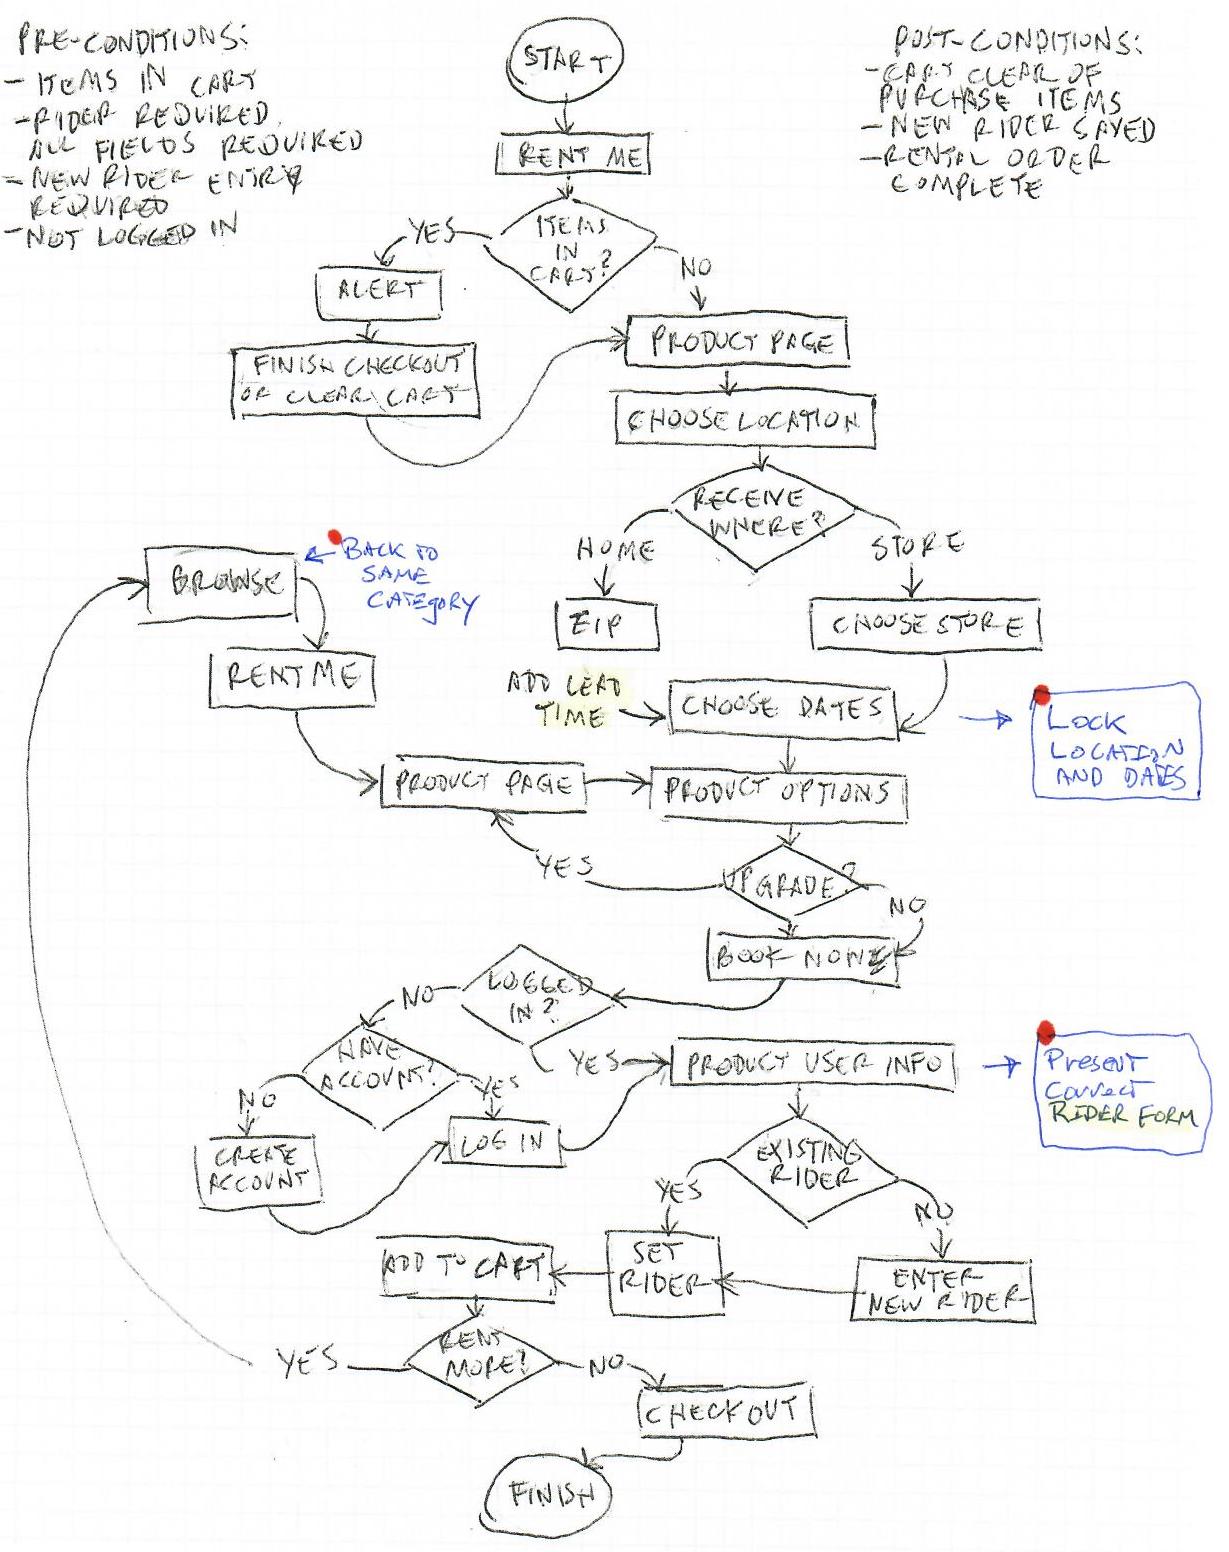 PRE-CONDITIONS:
- ITEMS IN CART
- RIDER REQUIRED.
ALL FIELDS REQUIRED
- NEW RIDER ENTRY
REQUIRED
- NOT LOGGED IN
START
POST-CONDITIONS:
- CART CLEAR OF
PURCHASE ITEMS
- NEW RIDER SAVED
- RENTAL ORDER
COMPLETE
RENT ME
ITEMS
IN
CART?
YES
NO
ALERT
FINISH CHECKOUT
OR CLEAR CART
PRODUCT PAGE
CHOOSE LOCATION
RECEIVE
WHERE?
HOME
STORE
BROWSE
BACK TO
SAME
CATEGORY
ZIP
CHOOSE STORE
RENT ME
ADD LEAD
TIME
CHOOSE DATES
LOCK
LOCATION
AND DATES
PRODUCT PAGE
PRODUCT OPTIONS
UPGRADE?
YES
NO
BOOK NOW
LOGGED
IN?
NO
YES
HAVE
ACCOUNT?
NO
YES
PRODUCT USER INFO
Present
Correct
RIDER FORM
CREATE
ACCOUNT
LOG IN
EXISTING
RIDER
YES
NO
ADD TO CART
SET
RIDER
ENTER
NEW RIDER
RENT
MORE?
YES
NO
CHECKOUT
FINISH